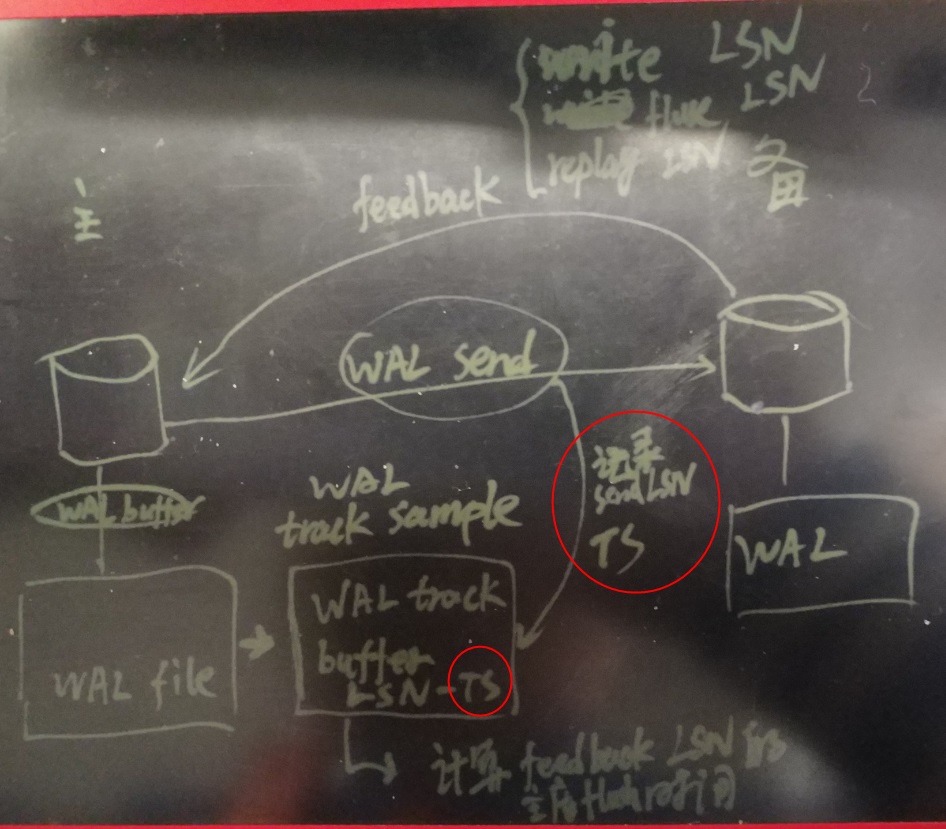 write LSN
flush LSN
replay LSN
备
feedback
主
WAL send
记录
send LSN
TS
WAL buffer
WAL
track sample
WAL
WAL track
buffer
LSN-TS
WAL file
计算 feedback LSN 的
主库flush时间